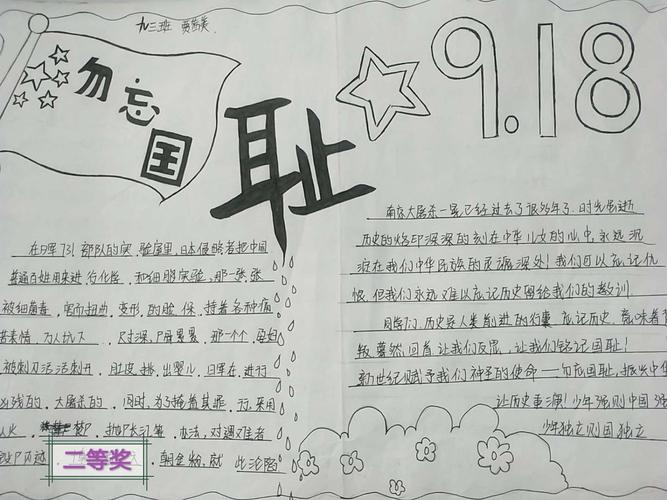 九三班 贾
勿忘国
耻
9.18
在日军731部队的实验房里,日本侵略者把中国
普通百姓用来进行化学,和细胞实验,那一张张
被细菌毒,害而扭曲,变形,的脸保,持着各种痛
苦表情,万人坑下,尺寸深,尸骨累累,那一个个,孕妇
被刺刀活活刺开,肚皮,挑,出婴儿,日军在,进行
凶残的,大屠杀的,同时,为了掩盖其罪,行,采用
办法,对遇难者
此沦陷
南京大屠杀一案已经过去了很多年了.时光虽逝
历史的烙印深深的刻在中华儿女的心中,永远沉
淀在我们中华民族的灵魂深处!我们可以忘记仇
恨,但我们永远难以忘记历史留给我们的教训.
同学们,历史是人类前进的行囊 忘记历史,意味着背
叛 蓦然,回首,让我们反思,让我们铭记国耻!
新世纪赋予我们神圣的使命——勿忘国耻,振兴中华
让历史重演!少年强则中国强
少年独立则国独立
二等奖